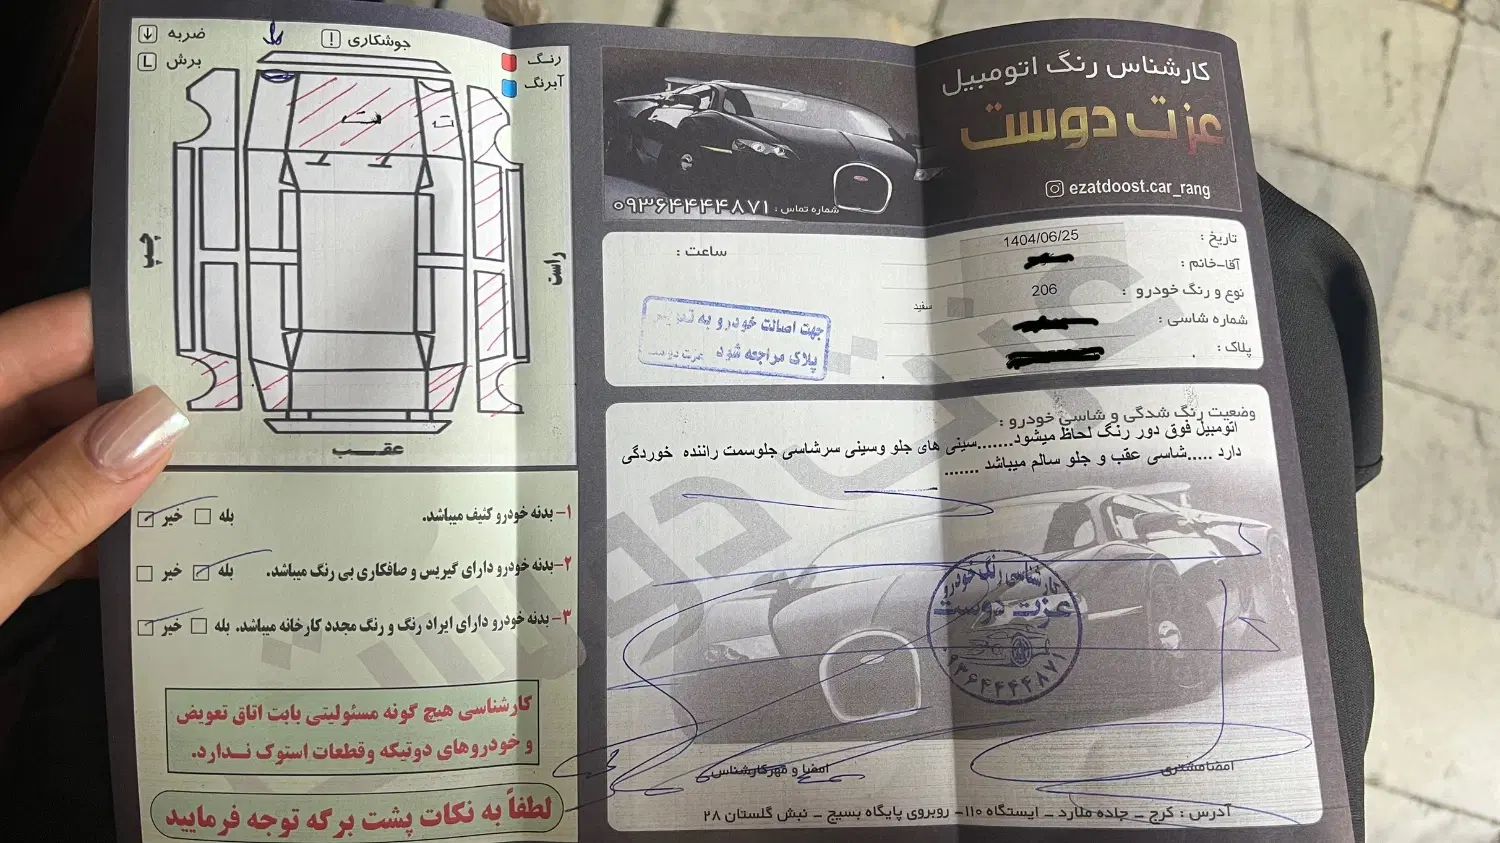 کارشناس رنگ اتومبیل
عزت دوست
ezatdoost.car_rang
شماره تماس : ۰۹۳۶۴۴۴۴۸۷۱
تاریخ : 1404/06/25
ساعت :
آقا-خانم :
نوع و رنگ خودرو : 206 سفید
شماره شاسی :
پلاک :
جهت اصالت خودرو به
پلاک مراجعه شود عزت دوست
وضعیت رنگ شدگی و شاسی خودرو :
اتومبیل فوق دور رنگ لحاظ میشود.......سینی های جلو وسینی سرشاسی جلوسمت راننده خوردگی
دارد .....شاسی عقب و جلو سالم میباشد .......
کارشناسی رنگ خودرو
عزت دوست
۰۹۳۶۴۴۴۴۸۷۱
امضا مشتری
امضا و مهرکارشناس
آدرس : کرج _ جاده ملارد _ ایستگاه ۱۱۰- روبروی پایگاه بسیج _ نبش گلستان ۲۸
ضربه
جوشکاری !
رنگ
برش L
آبرنگ
ت
چپ
راست
عقب
۱- بدنه خودرو کثیف میباشد. بله خیر
۲-بدنه خودرو دارای گیریس و صافکاری بی رنگ میباشد. بله خیر
۳- بدنه خودرو دارای ایراد رنگ و رنگ مجدد کارخانه میباشد. بله خیر
کارشناسی هیچ گونه مسئولیتی بابت اتاق تعویض
و خودروهای دوتیکه وقطعات استوک نـدارد.
لطفاً به نکات پشت برگه توجه فرمایید